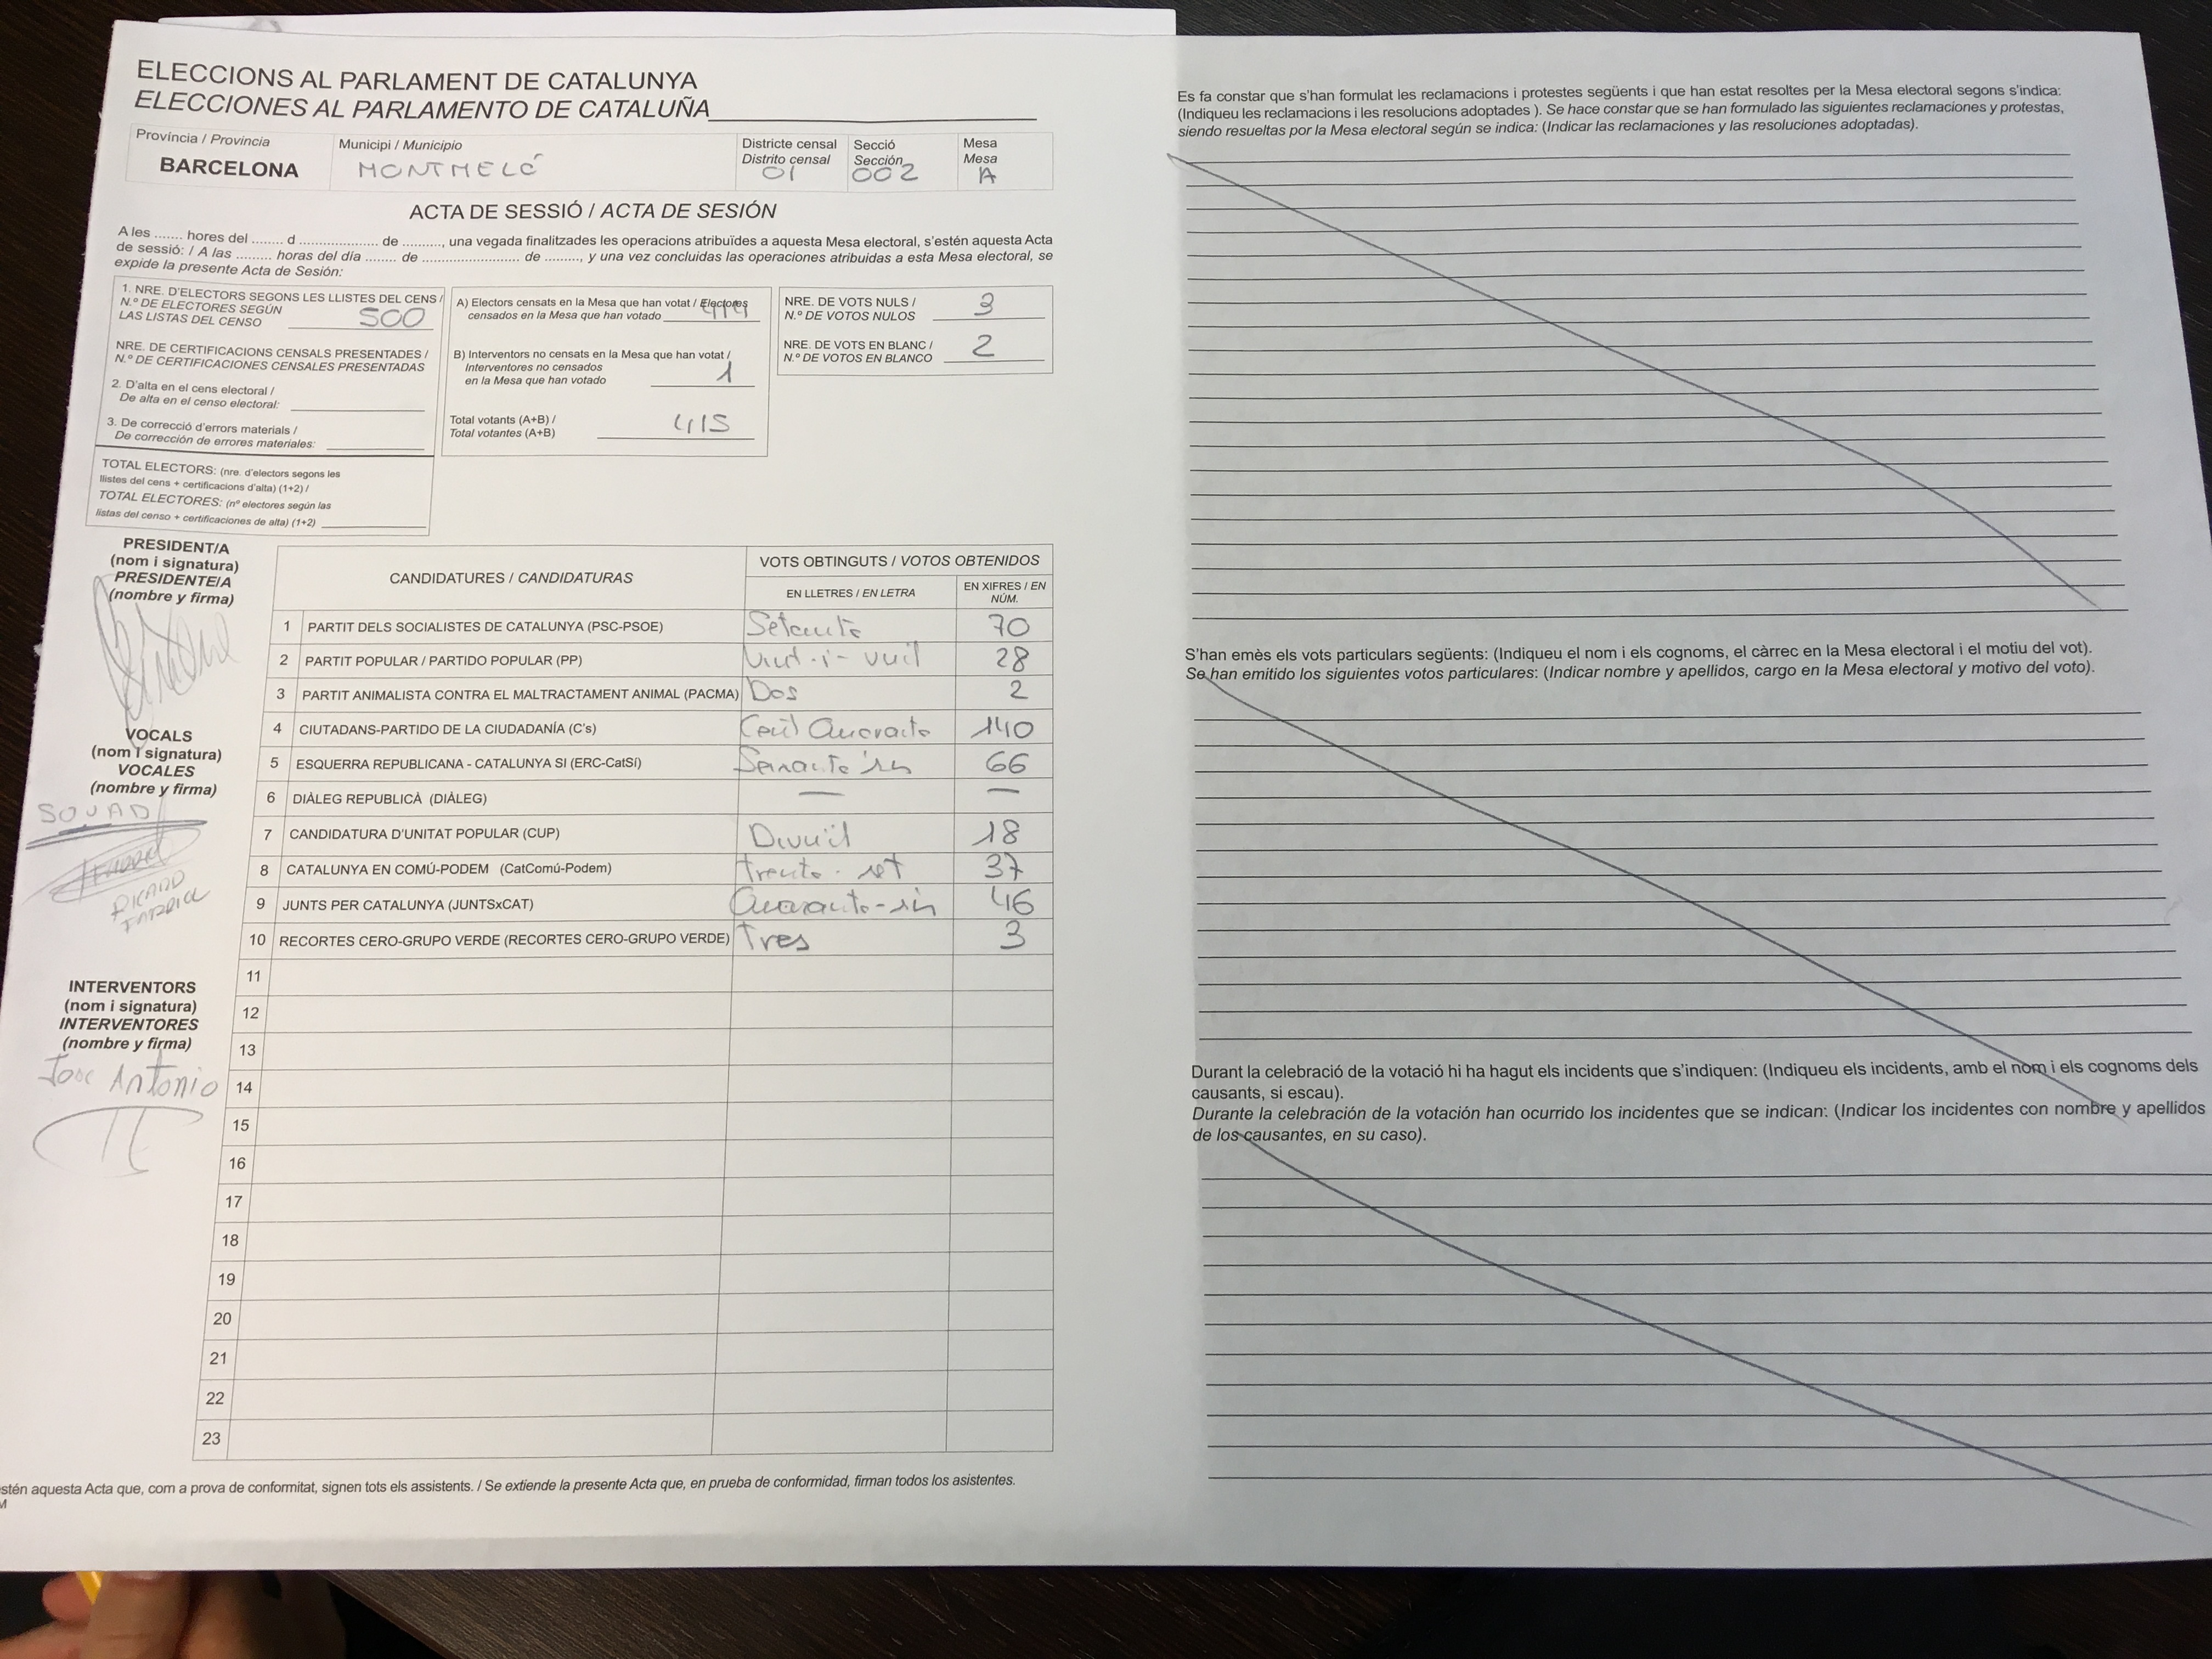 ELECCIONS AL PARLAMENT DE CATALUNYA
ELECCIONES AL PARLAMENTO DE CATALUÑA
Província / Provincia
BARCELONA
Municipi / Municipio
MONTMELÓ
Districte censal
Distrito censal
01
Secció
Sección
002
Mesa
Mesa
A
ACTA DE SESSIÓ / ACTA DE SESIÓN
A les ........ hores del ......... d .................... de ........., una vegada finalitzades les operacions atribuïdes a aquesta Mesa electoral, s'estén aquesta Acta
de sessió: / A las ........ horas del día ......... de .................... de ........., y una vez concluidas las operaciones atribuidas a esta Mesa electoral, se
expide la presente Acta de Sesión:
1. NRE. D'ELECTORS SEGONS LES LLISTES DEL CENS /
N.º DE ELECTORES SEGÚN
LAS LISTAS DEL CENSO
500
NRE. DE CERTIFICACIONS CENSALS PRESENTADES /
N.º DE CERTIFICACIONES CENSALES PRESENTADAS
2. D'alta en el cens electoral /
De alta en el censo electoral:
3. De correcció d'errors materials /
De corrección de errores materiales:
TOTAL ELECTORS: (nre. d'electors segons les
llistes del cens + certificacions d'alta) (1+2) /
TOTAL ELECTORES: (nº electores según las
listas del censo + certificaciones de alta) (1+2)
A) Electors censats en la Mesa que han votat / Electores
censados en la Mesa que han votado
B) Interventors no censats en la Mesa que han votat /
Interventores no censados
en la Mesa que han votado
1
Total votants (A+B) /
Total votantes (A+B)
415
NRE. DE VOTS NULS /
N.º DE VOTOS NULOS
3
NRE. DE VOTS EN BLANC /
N.º DE VOTOS EN BLANCO
2
PRESIDENT/A
(nom i signatura)
PRESIDENTE/A
(nombre y firma)
VOCALS
(nom i signatura)
VOCALES
(nombre y firma)
INTERVENTORS
(nom i signatura)
INTERVENTORES
(nombre y firma)
Jose Antonio
CANDIDATURES / CANDIDATURAS
VOTS OBTINGUTS / VOTOS OBTENIDOS
EN LLETRES / EN LETRA
EN XIFRES / EN
NÚM.
1 PARTIT DELS SOCIALISTES DE CATALUNYA (PSC-PSOE) Setanta 70
2 PARTIT POPULAR / PARTIDO POPULAR (PP) Vint-i-vuit 28
3 PARTIT ANIMALISTA CONTRA EL MALTRACTAMENT ANIMAL (PACMA) Dos 2
4 CIUTADANS-PARTIDO DE LA CIUDADANÍA (C's) 140
5 ESQUERRA REPUBLICANA - CATALUNYA SÍ (ERC-CatSí) 66
6 DIÀLEG REPUBLICÀ (DIÀLEG) — —
7 CANDIDATURA D'UNITAT POPULAR (CUP) 18
8 CATALUNYA EN COMÚ-PODEM (CatComú-Podem) 37
9 JUNTS PER CATALUNYA (JUNTSxCAT) 46
10 RECORTES CERO-GRUPO VERDE (RECORTES CERO-GRUPO VERDE) Tres 3
11
12
13
14
15
16
17
18
19
20
21
22
23
stén aquesta Acta que, com a prova de conformitat, signen tots els assistents. / Se extiende la presente Acta que, en prueba de conformidad, firman todos los asistentes.
Es fa constar que s'han formulat les reclamacions i protestes següents i que han estat resoltes per la Mesa electoral segons s'indica:
(Indiqueu les reclamacions i les resolucions adoptades ). Se hace constar que se han formulado las siguientes reclamaciones y protestas,
siendo resueltas por la Mesa electoral según se indica: (Indicar las reclamaciones y las resoluciones adoptadas).
S'han emès els vots particulars següents: (Indiqueu el nom i els cognoms, el càrrec en la Mesa electoral i el motiu del vot).
Se han emitido los siguientes votos particulares: (Indicar nombre y apellidos, cargo en la Mesa electoral y motivo del voto).
Durant la celebració de la votació hi ha hagut els incidents que s'indiquen: (Indiqueu els incidents, amb el nom i els cognoms dels
causants, si escau).
Durante la celebración de la votación han ocurrido los incidentes que se indican: (Indicar los incidentes con nombre y apellidos
de los causantes, en su caso).